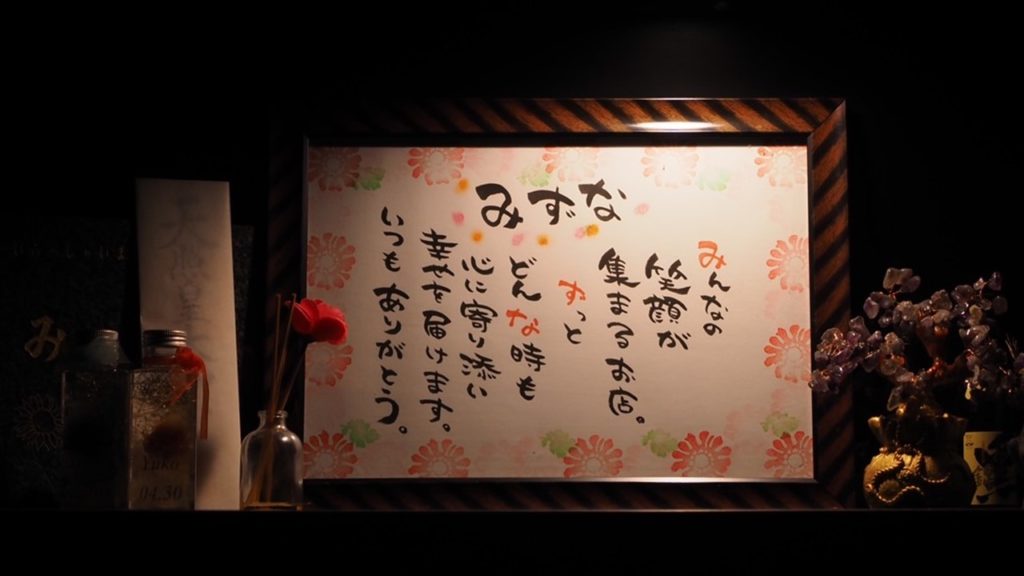 みずな
みんなの
笑顔が
集まるお店。
ずっと
どんな時も
心に寄り添い
幸せを届けます。
いつもありがとう。
み
Yuka
04.30